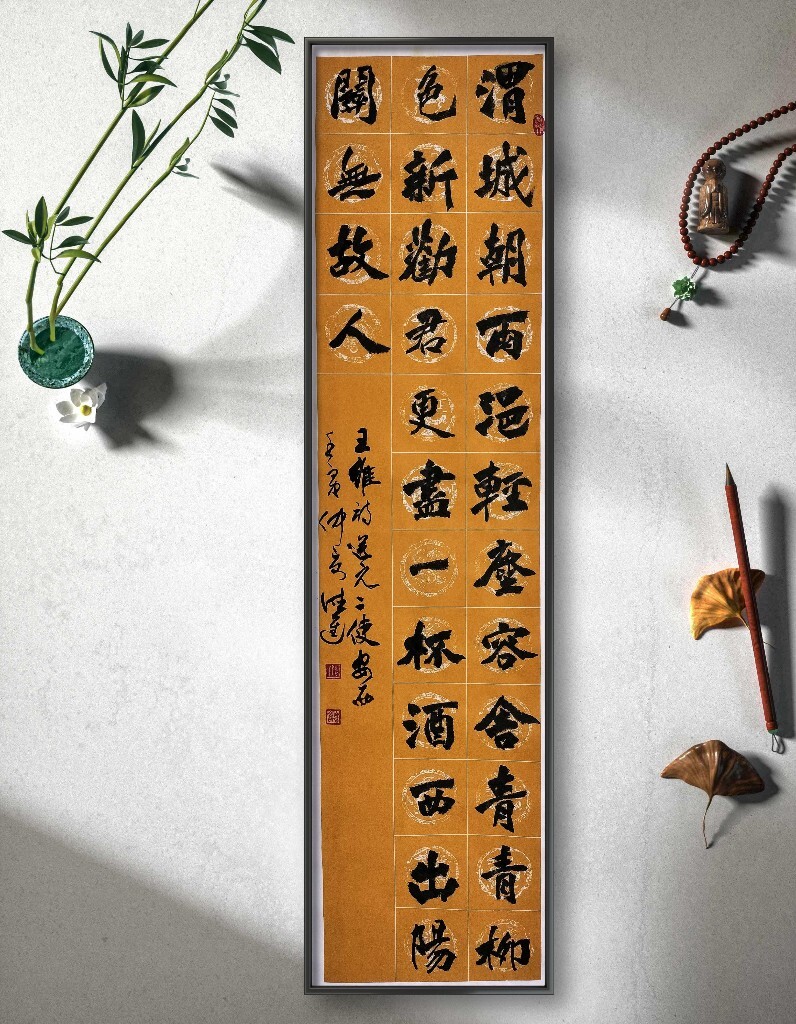 渭城朝雨浥輕塵客舍青青柳
色新勸君更盡一杯酒西出陽
關無故人
王維詩送元二使安西
壬寅仲夏